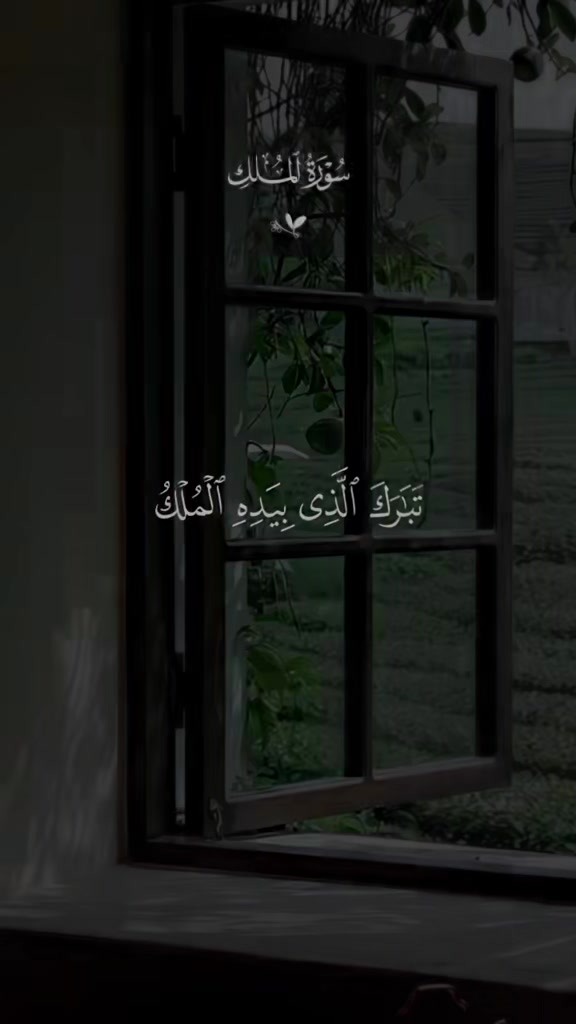 سُوْرَةُ الْمُلْكِ
تَبَٰرَكَ ٱلَّذِى بِيَدِهِ ٱلْمُلْكُ